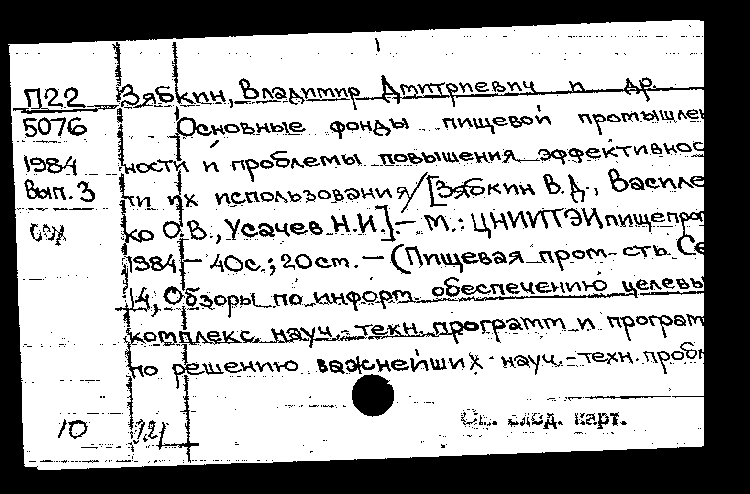 П22 Зябкин, Владимир Дмитриевич и др.
5076 Основные фонды пищевой промышлен
1984 ности и проблемы повышения эффективнос
Вып. 3 ти их использования/[Зябкин В.Д., Василе
ко О.В., Усачев Н.И.].— М.: ЦНИИТЭИпищепром
1984.— 40с.; 20ст. — (Пищевая пром-сть. Се
14, Обзоры по информ. обеспечению целевы
комплекс. науч.-техн. программ и програм
по решению важнейших науч.-техн. пробл
10 См. след. карт.